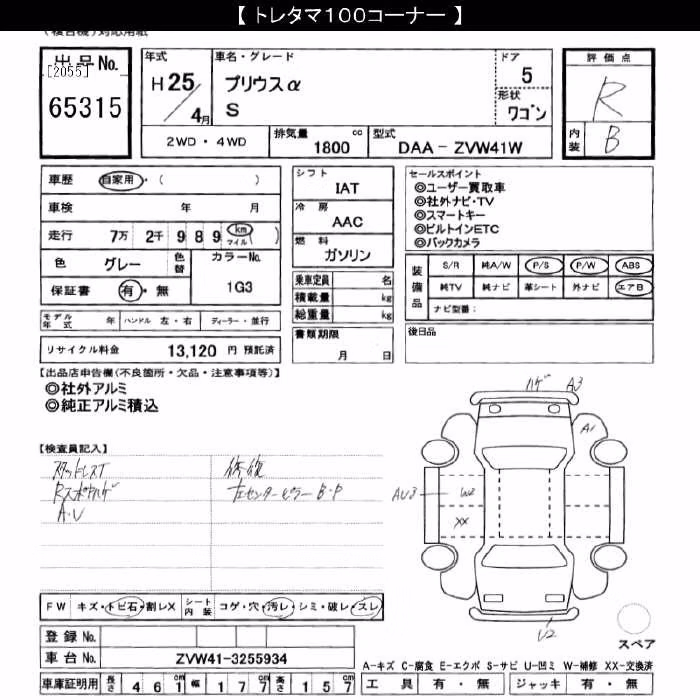 【 トレタマ100コーナー 】
(複合機)対応用紙
出品No.
[2055]
65315
年式
H 25 / 4月
車名・グレード
プリウスα
S
ドア
5
形状
ワゴン
評価点
R
内装
B
2WD・4WD
排気量 1800 cc
型式 DAA－ZVW41W
車歴 自家用・( )
車検 年 月
走行 7万 2千 9 8 9 km マイル ( )
色 グレー
色替
カラーNo.
1G3
保証書 有・無
モデル年式 年
ハンドル 左・右
ディーラー・並行
リサイクル料金 13,120 円 預託済
シフト IAT
冷房 AAC
燃料 ガソリン
乗車定員 名
積載量 kg
総重量 kg
書類期限
月 日
セールスポイント
◎ユーザー買取車
◎社外ナビ・TV
◎スマートキー
◎ビルトインETC
◎バックカメラ
装備品
S/R 純A/W P/S P/W ABS
純TV 純ナビ 革シート 外ナビ エアB
ナビ型番:
後日品
【出品店申告欄(不良箇所・欠品・注意事項等)】
◎社外アルミ
◎純正アルミ積込
【検査員記入】
スタッドレスT
Rスポイラハゲ
A・U
修復
左センターピラーB・P
ハゲ A3
A1
AU3
W2
XX
U2
FW キズ・トビ石・割レX
シート内装 コゲ・穴・汚レ・シミ・破レ・スレ
登録No.
車台No. ZVW41-3255934
車庫証明用 長さ 4 6 1 cm 幅 1 7 7 cm 高さ 1 5 7 cm
スペア
A－キズ C－腐食 E－エクボ S－サビ U－凹ミ W－補修 XX－交換済
工具 有・無
ジャッキ 有・無